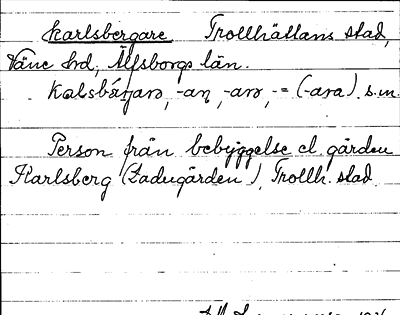 Karlsbergare Trollhättans stad,
Väne hd, Älfsborgs län.
Kalsbárjarə, -aɳ, -arə, -= (-ara). s.m.
Person från bebyggelse el. gården
Karlsberg (Ladugården), Trollh. stad